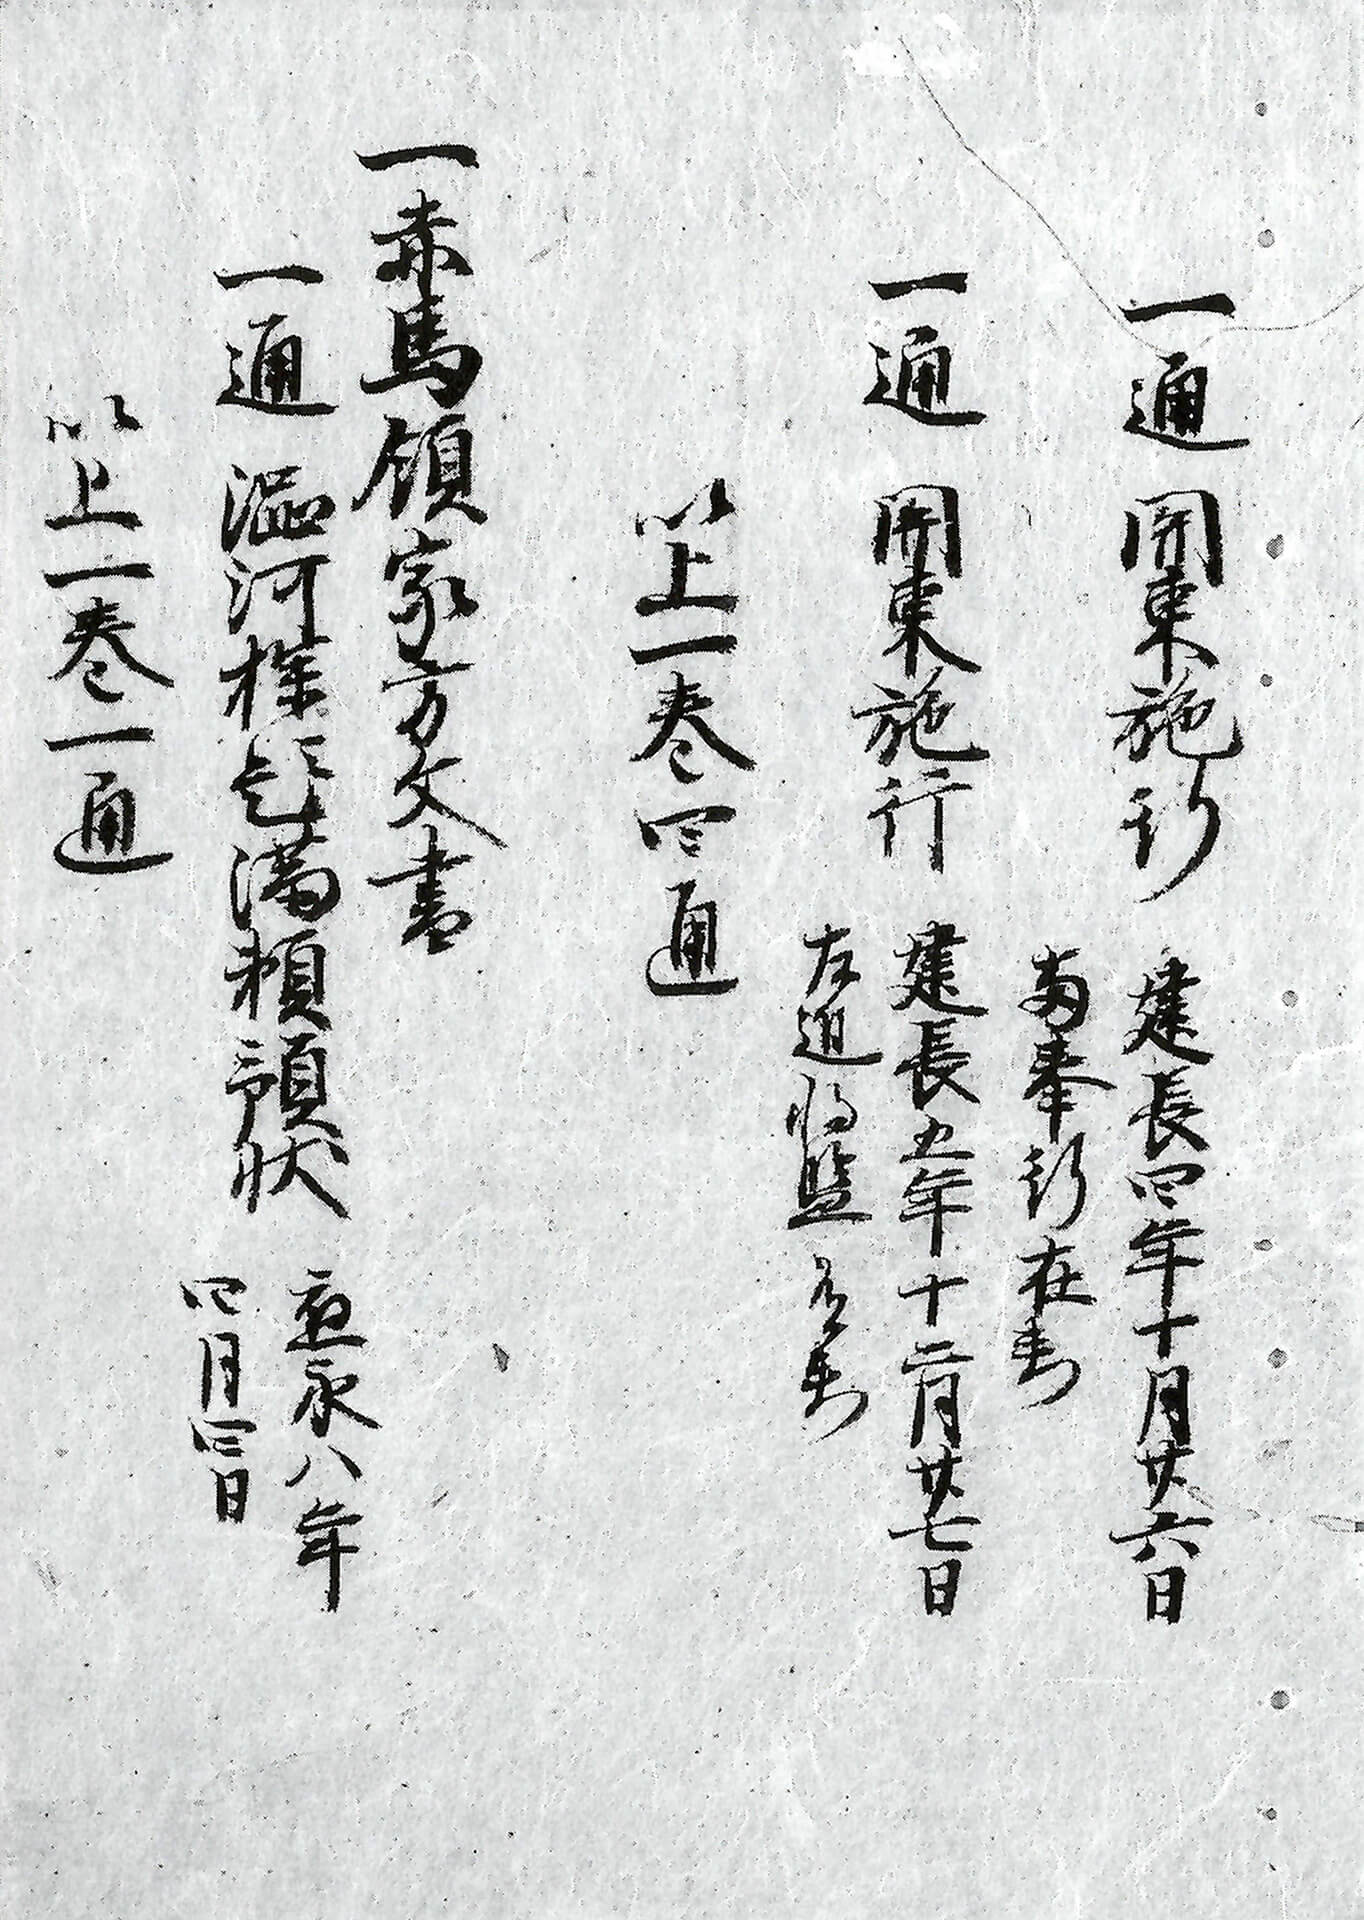 一通 関東施行 建長四年十月廿六日
両奉行在判
一通 関東施行 建長五年十二月廿七日
左近将監 在判
以上一巻四通
一赤馬領家方文書
一通 澁河探題満頼預状 應永八年
四月四日
以上一巻一通